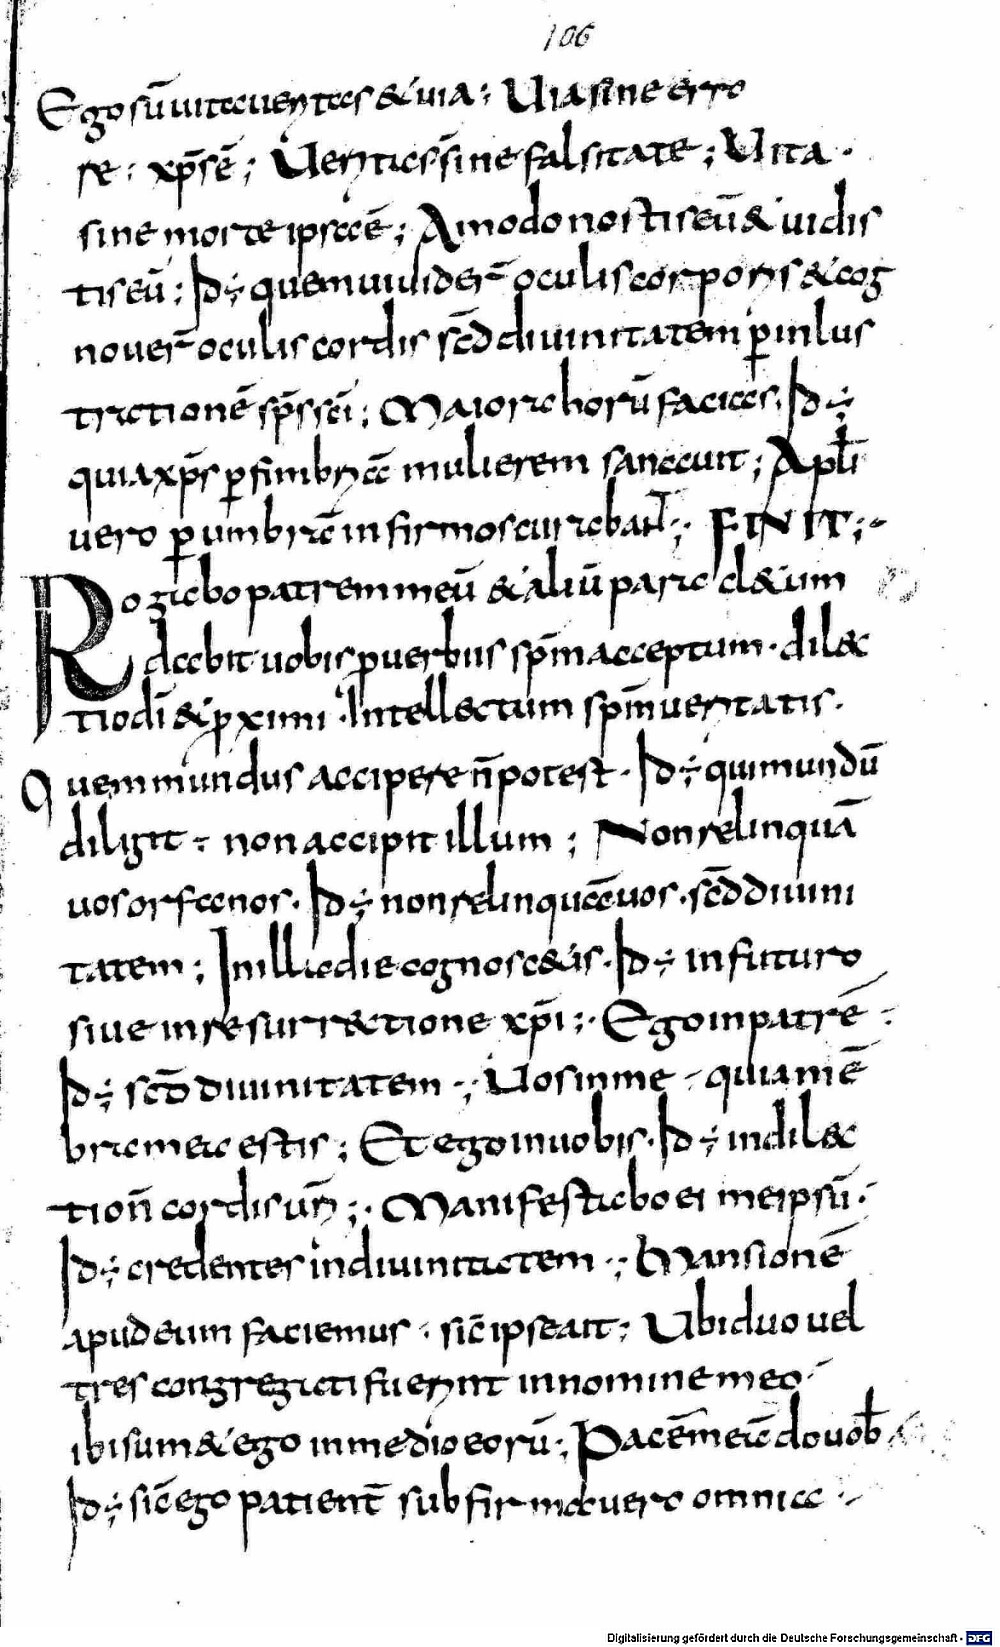 106
Ego sū uita ueritas & uia; Uia sine erro
re; xp̄s ē; Ueritas sine falsitate; Uita
sine morte ipse ē; Amodo nostis eū & uidis
tis eū; Id ÷ quem uiuider̄ oculis corporis & cog
nouer̄ oculis cordis scd̄ diuinitatem ꝑ inlus
trationē sp̄s sc̄i; Maiora horū facias. Id ÷
quia xp̄s ꝑ fimbriā mulierem sanauit; Apłi
uero ꝑ umbrā infirmos curabant; FINIT;
Rogabo patrem meū & aliū paraclęum
dabit uobis ꝑ uerbiis sp̄m acceptum. dilec
tio dī & ꝓximi. Intellectum sp̄m ueritatis.
Quem mundus accipere n̄ potest. Id ÷ qui mundū
diligit ÷ non accipit illum; Non relinquā
uos orfanos. Id ÷ non relinquā uos. scd̄ diuini
tatem; In illa die cognosc&is. Id ÷ in futuro
siue in resurrectione xp̄i; Ego in patrē.
Id ÷ scd̄ diuinitatem; Uos in me ÷ quia mē
bra mea estis; Et ego in uobis. Id ÷ in dilec
tion̄ cordis ur̄i; Manifestabo ei me ipsū.
Id ÷ credentes in diuinitatem; Mansionē
apud eum faciemus. sic̄ ipse ait; Ubi duo uel
tres congregati fuerint in nomine meo
ibi sum & ego in medio eorū; Pacē meā do uob̄
Id ÷ sic̄ ego patient̄ subfirma uero omnia
Digitalisierung gefördert durch die Deutsche Forschungsgemeinschaft - DFG